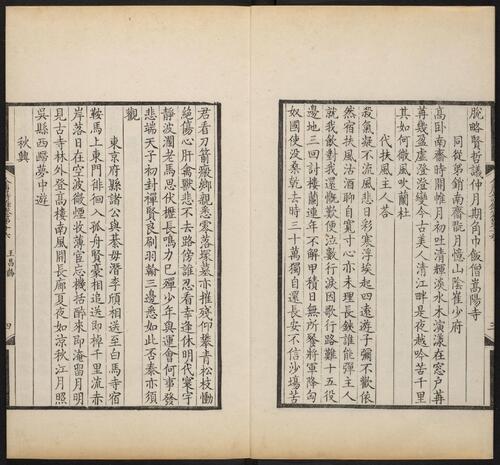 脫略賢哲議仲月期角巾飯僧嵩陽寺
同從弟銷南齋翫月憶山陰崔少府
高卧南齋時開帷月初吐清輝淡水木演漾在窻戶苒
苒幾盈虛澄澄變今古美人清江畔是夜越吟苦千里
其如何微風吹蘭杜
代扶風主人荅
殺氣凝不流風悲日彩寒浮埃起四遠遊子彌不歡依
然宿扶風沽酒聊自寬寸心亦未理長鋏誰能彈主人
就我飲對我還慨歎便泣數行淚因歌行路難十五役
邊地三回討樓蘭連年不解甲積日無所餐將軍降匈
奴國使沒桑乾去時三十萬獨自還長安不信沙塲苦
王昌齡
四
君看刀箭瘢鄉親悉零落塚墓亦摧殘仰攀青松枝慟
絕傷心肝禽獸悲不去路傍誰忍看幸逢休明代寰宇
靜波瀾老馬思伏櫪長鳴力已殫少年與運會何事發
悲端天子初封禪賢良刷羽翰三邊悉如此否泰亦須
觀
東京府縣諸公與綦毋潛李頎相送至白馬寺宿
鞍馬上東門徘徊入孤舟賢豪相追送即棹千里流赤
岸落日在空波微煙收薄宦忘機括醉來即淹留月明
見古寺林外登高樓南風開長廊夏夜如涼秋江月照
吳縣西歸夢中遊
秋興